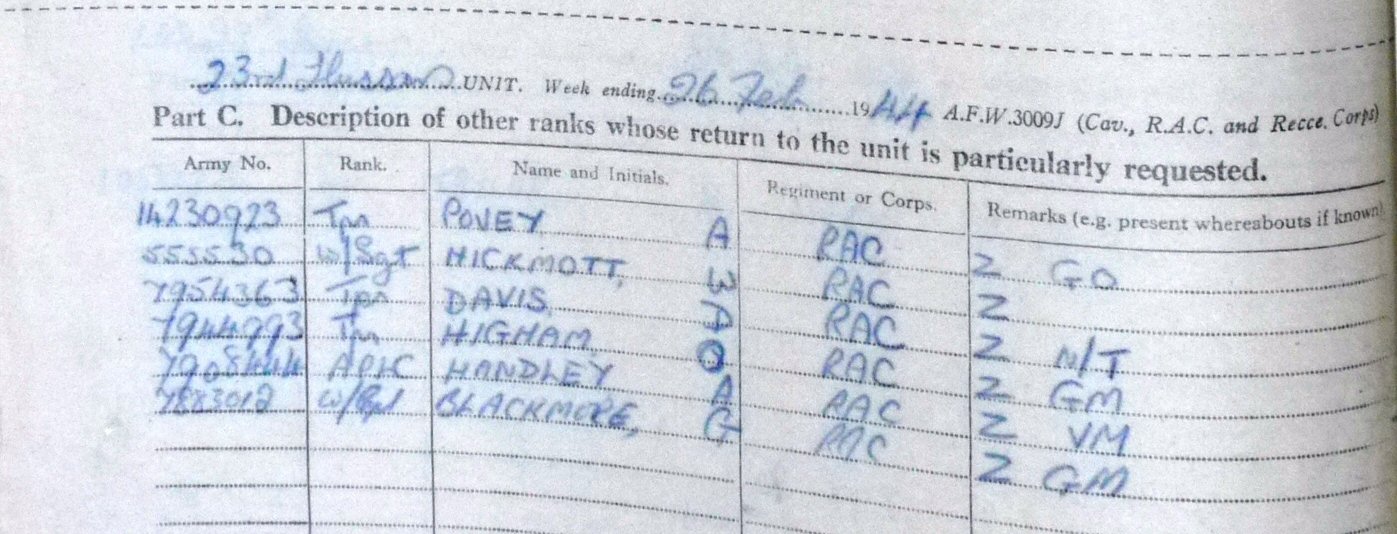 23rd Hussars UNIT. Week ending 26 Feb 1944 A.F.W.3009J (Cav., R.A.C. and Recce. Corps)
Part C. Description of other ranks whose return to the unit is particularly requested.
Army No. Rank. Name and Initials. Regiment or Corps. Remarks (e.g. present whereabouts if known)
14230923 Tpr POVEY A RAC Z GO
555530 W/Sgt HICKMOTT, W RAC Z
7954363 Tpr DAVIS, A RAC Z N/T
7944993 Tpr HIGHAM O RAC Z GM
HANDLEY A RAC Z VM
BLACKMORE, G RAC Z GM